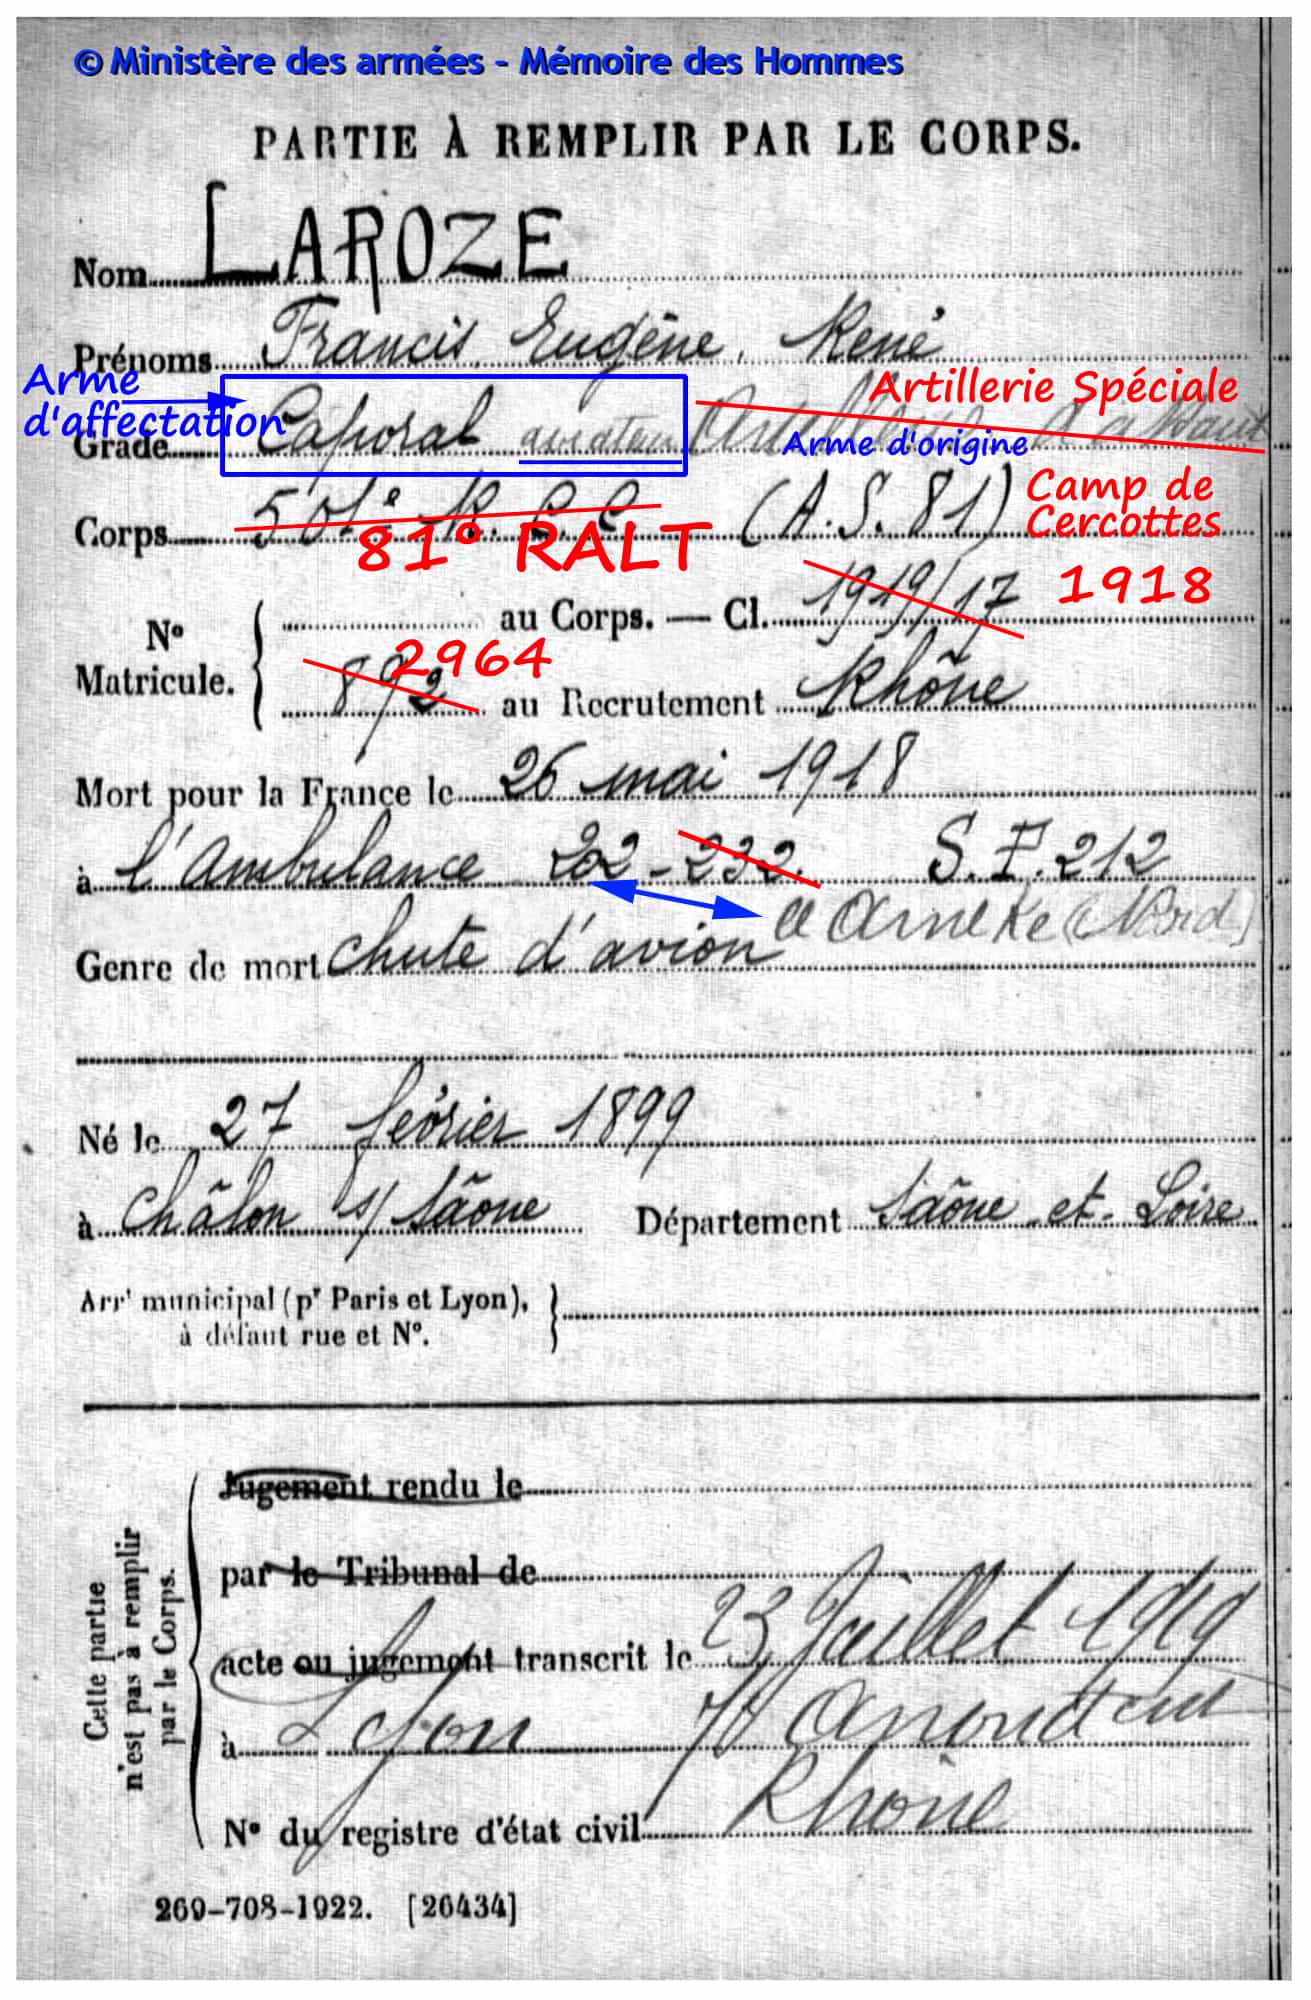 © Ministère des armées - Mémoire des Hommes
PARTIE À REMPLIR PAR LE CORPS.
Nom LAROZE
Prénoms Francis, Eugène, René
Arme d'affectation
Artillerie Spéciale
Grade Caporal aviateur Artillerie d'assaut
Arme d'origine
Corps 501e R. C. C (A.S. 81) Camp de Cercottes
81° RALT
N° Matricule. { au Corps. — Cl. 1919/17 1918
892 2964 au Recrutement Rhône
Mort pour la France le 26 mai 1918
à l'Ambulance 202-232. S.P. 212
à Arneke (Nord)
Genre de mort chute d'avion
Né le 27 février 1899
à Châlon s/ Saône Département Saône et Loire
Arrt municipal (pr Paris et Lyon), à défaut rue et N°. }
Cette partie n'est pas à remplir par le Corps.
Jugement rendu le
par le Tribunal de
acte ou jugement transcrit le 23 Juillet 1919
à Lyon
Rhône
N° du registre d'état civil
269-708-1922. [26434]